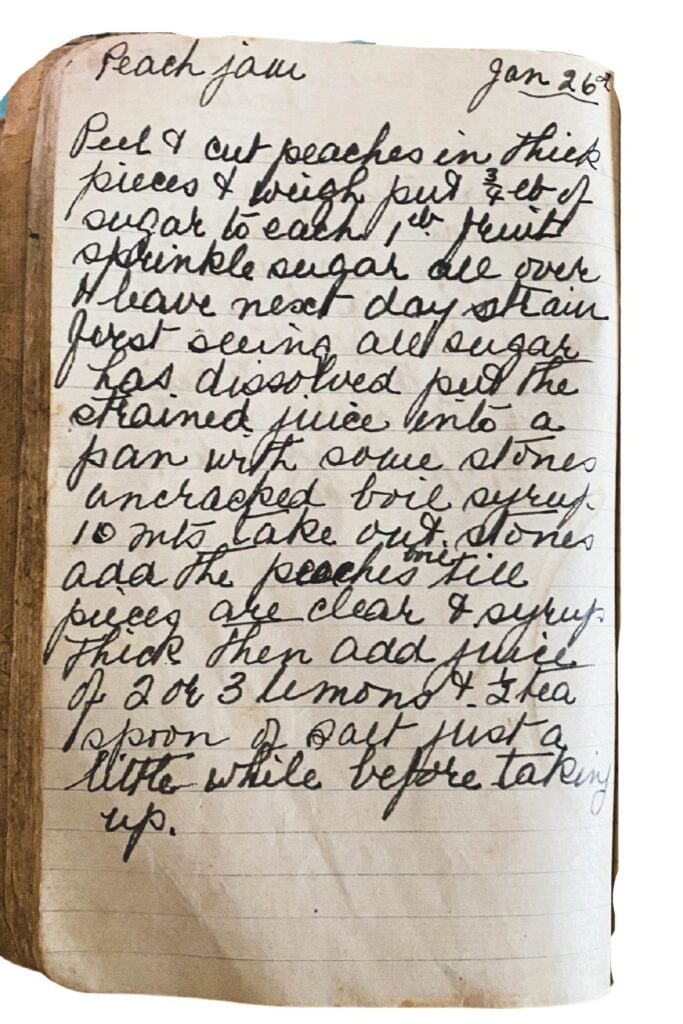 Peach jam Jan 26th
Peel & cut peaches in thick
pieces & weigh put 3/4 lb of
sugar to each 1 lb fruit
sprinkle sugar all over
& leave next day strain
first seeing all sugar
has dissolved put the
strained juice into a
pan with some stones
uncracked boil syrup
10 mts take out stones
add the peaches till
pieces are clear & syrup
thick then add juice
of 2 or 3 lemons & 1/2 tea
spoon of salt just a
little while before taking
up.